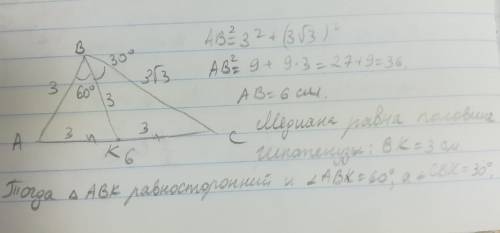 B
30°
3
60°
3
3√3
A
3
3
K
6
C
AB² = 3² + (3√3)²
AB² = 9 + 9·3 = 27+9=36
AB = 6 см.
Медиана равна половине
гипотенузы: BK = 3 см
Тогда △ ABK равносторонний и ∠ABK = 60°, а ∠CBK = 30°.